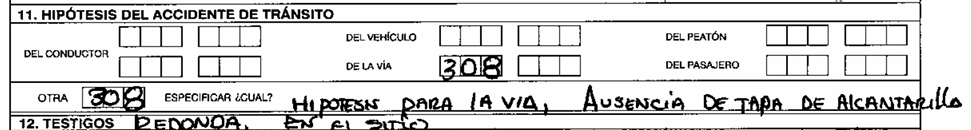 11. HIPÓTESIS DEL ACCIDENTE DE TRÁNSITO
DEL CONDUCTOR
DEL VEHÍCULO
DEL PEATÓN
DE LA VÍA 308
DEL PASAJERO
OTRA 308 ESPECIFICAR ¿CUAL? HIPOTESIS PARA LA VIA, AUSENCIA DE TAPA DE AlCANTARIlla
12. TESTIGOS REDONDA, EN El SITIO